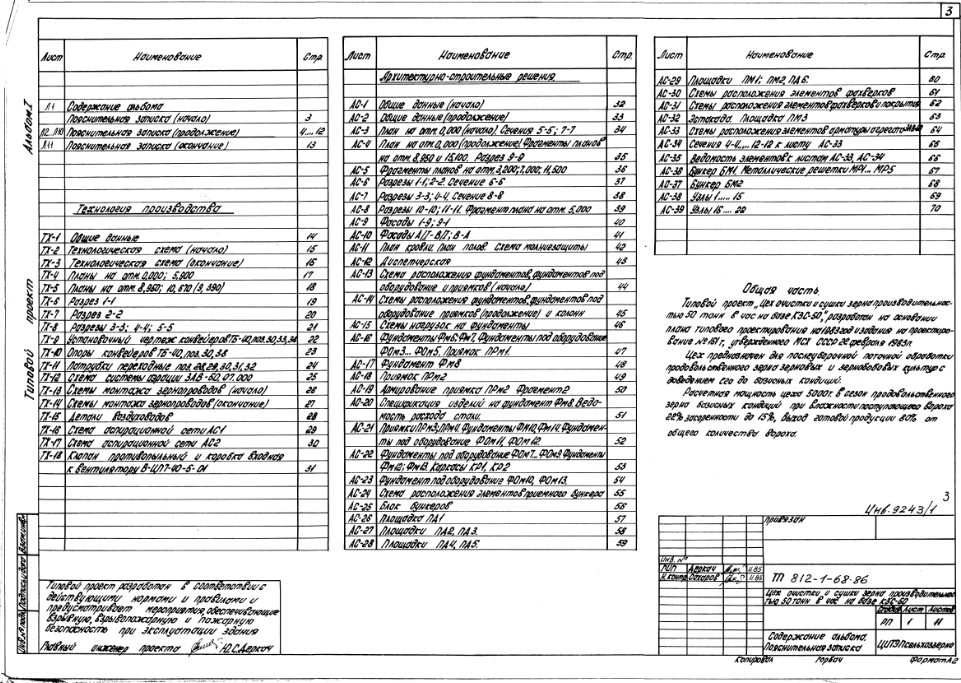 3
Альбом I
Типовой проект
Лист Наименование Стр.
Л-1 Содержание альбома
Пояснительная записка (начало) 3
Л2...Л10 Пояснительная записка (продолжение) 4...12
Л-11 Пояснительная записка (окончание) 13
Технология производства
ТХ-1 Общие данные 14
ТХ-2 Технологическая схема (начало) 15
ТХ-3 Технологическая схема (окончание) 16
ТХ-4 Планы на отм. 0,000; 5,900 17
ТХ-5 Планы на отм. 8,950; 10,610 (9,390) 18
ТХ-6 Разрез 1-1 19
ТХ-7 Разрез 2-2 20
ТХ-8 Разрезы 3-3; 4-4; 5-5 21
ТХ-9 Установочный чертеж конвейеров ТБ-40, поз. 30, 33, 38 22
ТХ-10 Опоры конвейеров ТБ-40, поз. 30, 38 23
ТХ-11 Патрубки переходные поз. 28, 29, 30, 31, 32 24
ТХ-12 Схема системы аэрации ЗАВ-60. 07.000 25
ТХ-13 Схемы монтажа зернопроводов (начало) 26
ТХ-14 Схемы монтажа зернопроводов (окончание) 27
ТХ-15 Детали воздуховодов 28
ТХ-16 Схема аспирационной сети АС1 29
ТХ-17 Схема аспирационной сети АС2 30
ТХ-18 Клапан противопыльный и коробка входная
к вентилятору В-ЦП7-40-5-01 31
Лист Наименование Стр.
Архитектурно-строительные решения
АС-1 Общие данные (начало) 32
АС-2 Общие данные (продолжение) 33
АС-3 План на отм. 0,000 (начало). Сечения 5-5; 7-7 34
АС-4 План на отм. 0,000 (продолжение). Фрагменты планов
на отм. 8,950 и 15,100. Разрез 9-9 35
АС-5 Фрагменты планов на отм. 3,200; 7,000; 11,500 36
АС-6 Разрезы 1-1; 2-2. Сечение 6-6 37
АС-7 Разрезы 3-3; 4-4. Сечение 8-8 38
АС-8 Разрезы 10-10; 11-11. Фрагмент плана на отм. 5,000 39
АС-9 Фасады 1-9; 9-1 40
АС-10 Фасады А/Г-В/Г; В-А 41
АС-11 План кровли, план полов. Схема молниезащиты 42
АС-12 Диспетчерская 43
АС-13 Схема расположения фундаментов, фундаментов под
оборудование и приямков (начало) 44
АС-14 Схемы расположения фундаментов, фундаментов под
оборудование приямков (продолжение) и колонн 45
АС-15 Схемы нагрузок на фундаменты 46
АС-16 Фундаменты Фм6; Фм7. Фундаменты под оборудование
ФОм3... ФОм5. Приямок ПРм1. 47
АС-17 Фундамент Фм8 48
АС-18 Приямок ПРм2 49
АС-19 Армирование приямка ПРм2 Фрагмент 2 50
АС-20 Спецификация изделий на фундамент Фм8. Ведо-
мость расхода стали. 51
АС-21 Приямки ПРм3; ПРм4. Фундаменты Фм10, Фм14. Фундамен-
ты под оборудование ФОм11, ФОм12. 52
АС-22 Фундаменты под оборудование ФОм7... ФОм9 Фундаменты
Фм12; Фм13. Каркасы КР1, КР2 53
АС-23 Фундамент под оборудование ФОм10, ФОм13. 54
АС-24 Схема расположения элементов приемного бункера 55
АС-25 Блок бункеров 56
АС-26 Площадка ПА1 57
АС-27 Площадки ПА2, ПА3. 58
АС-28 Площадки ПА4, ПА5. 59
Лист Наименование Стр.
АС-29 Площадки ПМ1; ПМ2, ПА6. 60
АС-30 Схемы расположения элементов фахверков 61
АС-31 Схемы расположения элементов фахверков и покрытия 62
АС-32 Эстакада Площадка ПМ3 63
АС-33 Схемы расположения элементов арматуры агрегата 64
АС-34 Сечения 4-4,... 12-12 к листу АС-33 65
АС-35 Ведомость элементов к листам АС-33, АС-34 66
АС-36 Бункер БМ1. Металлические решетки МР1... МР5 67
АС-37 Бункер БМ2 68
АС-38 Узлы 1..... 15 69
АС-39 Узлы 16 ... 22 70
Общая часть.
Типовой проект „Цех очистки и сушки зерна производительнос-
тью 50 тонн в час на базе КЗС-50", разработан на основании
плана типового проектирования на 1985 год и задания на проектиро-
вание № 161 г, утвержденного МСХ СССР 22 февраля 1983г.
Цех предназначен для послеуборочной поточной обработки
продовольственного зерна зерновых и зернобобовых культур с
доведением его до базисных кондиций.
Расчетная мощность цеха 5000т. в сезон продовольственного
зерна базисных кондиций при влажности поступающего вороха
22% засоренности до 15%, выход готовой продукции 80% от
общего количества вороха.
3
Инв. 9243/1
Типовой проект разработан в соответствии с
действующими нормами и правилами и
предусматривает мероприятия, обеспечивающие
взрывную, взрывопожарную и пожарную
безопасность при эксплуатации здания
Главный инженер проекта Ю.С. Деркач
Инв. № подл. Подпись и дата Взам. инв. №
Привязан
Инв. №
ГИП Деркач 11.85
Н. контр. Сахаров 11.85
ТП 812-1-68.86
Цех очистки и сушки зерна производительнос-
тью 50 тонн в час на базе КЗС-50
Стадия Лист Листов
РП 1 11
Содержание альбома.
Пояснительная записка
ЦИТЭПсельхоззерно
Копировал Горбач Формат А2